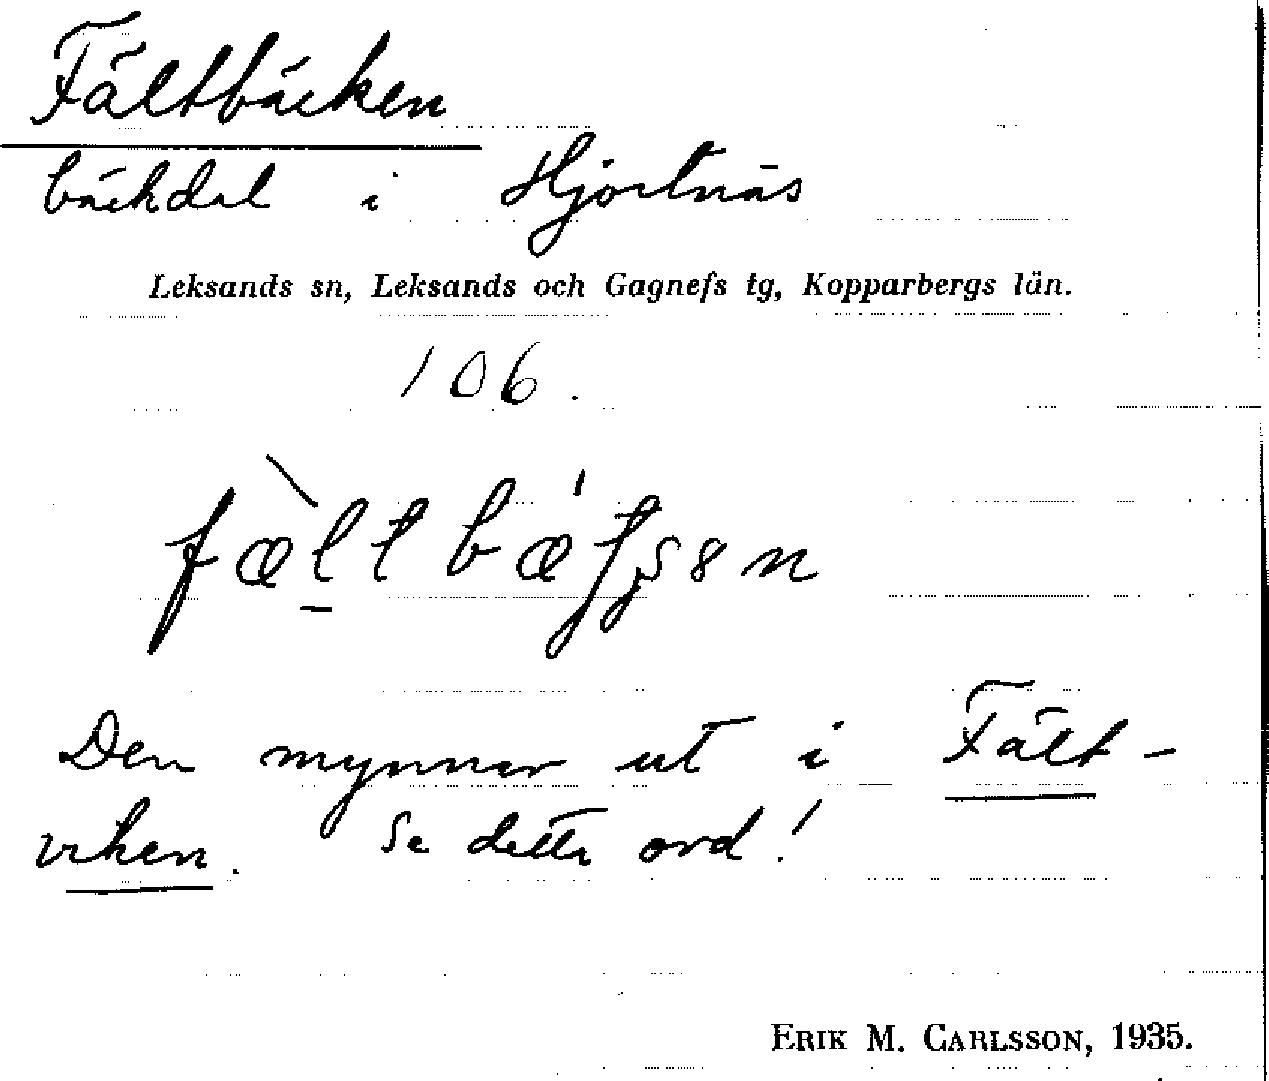 Fältbäcken
bäckdal i Hjortnäs
Leksands sn, Leksands och Gagnefs tg, Kopparbergs län.
106.
Den mynnar ut i Fält-
viken. Se detta ord!
ERIK M. CARLSSON, 1935.